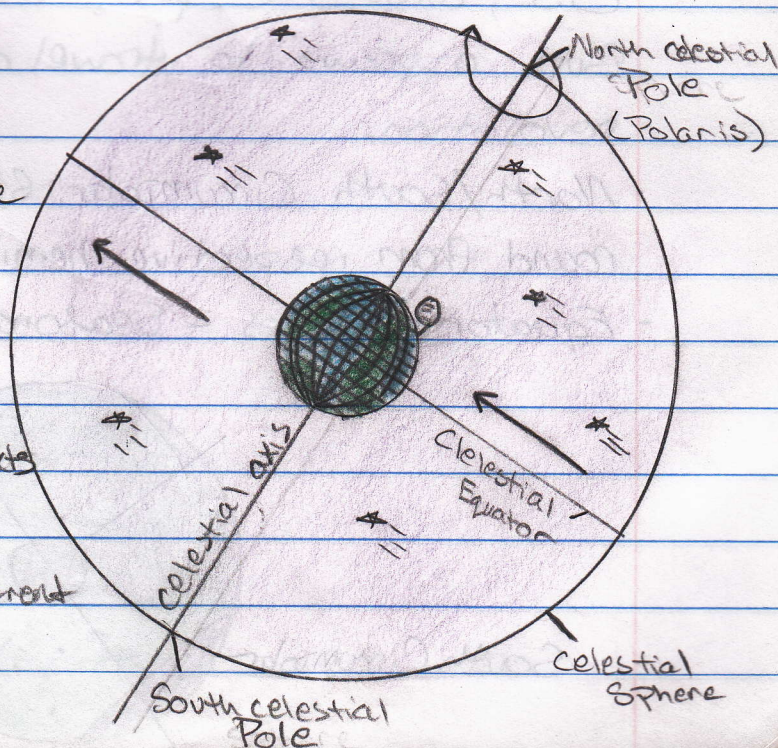 North celestial
Pole
(Polaris)
celestial axis
Clelestial
Equator
celestial
Sphere
South celestial
Pole